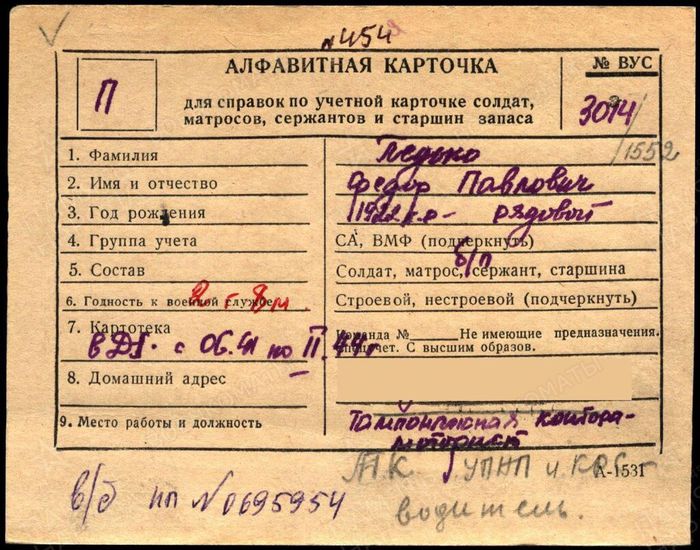 №454
АЛФАВИТНАЯ КАРТОЧКА
№ ВУС
П
для справок по учетной карточке солдат,
матросов, сержантов и старшин запаса
3014
/1552
1. Фамилия
2. Имя и отчество Федор Павлович
3. Год рождения 1922 г.р. - рядовой
4. Группа учета СА, ВМФ (подчеркнуть)
б/п
5. Состав Солдат, матрос, сержант, старшина
6. Годность к военной службе Строевой, нестроевой (подчеркнуть)
7. Картотека Команда № Не имеющие предназначения.
С высшим образов.
в ДА с 06.41 по II.44г
8. Домашний адрес
9. Место работы и должность Тампонажная контора-
моторист
УПНП и КРС
А-1531
в/б НП №0695954
водитель.